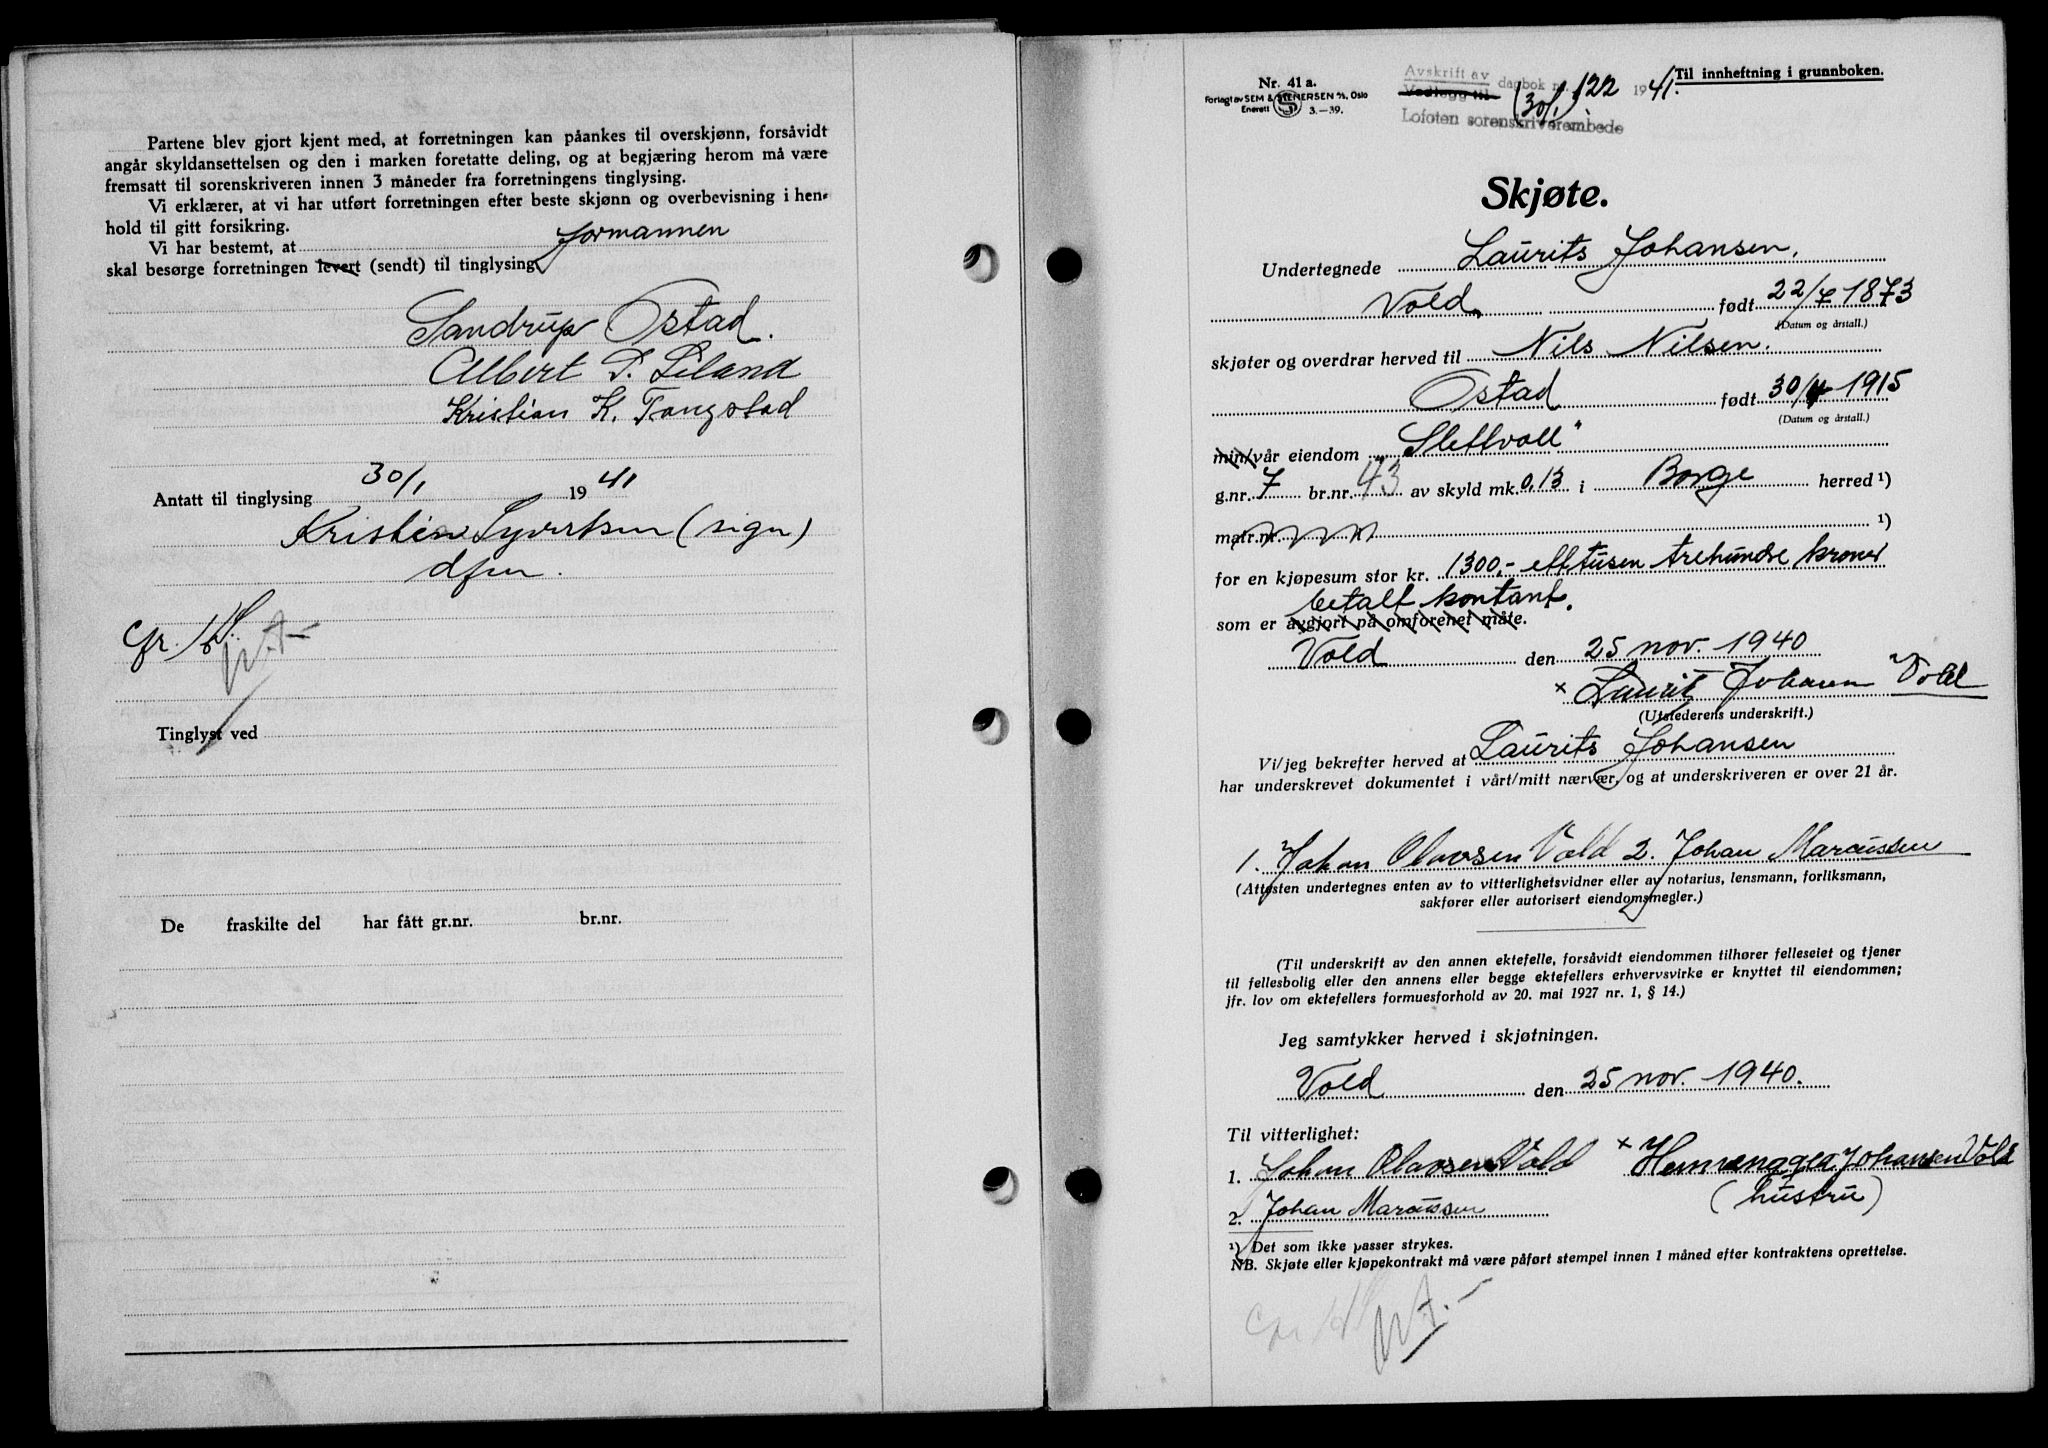 Partene blev gjort kjent med, at forretningen kan påankes til overskjønn, forsåvidt
angår skyldansettelsen og den i marken foretatte deling, og at begjæring herom må være
fremsatt til sorenskriveren innen 3 måneder fra forretningens tinglysing.
Vi erklærer, at vi har utført forretningen efter beste skjønn og overbevisning i hen-
hold til gitt forsikring.
Vi har bestemt, at formannen
skal besørge forretningen levert (sendt) til tinglysing
Sandrup Ostad.
Albert D. Leland
Kristian K. Tangstad
Antatt til tinglysing 30/1 1941
Kristine Syvertsen (sign)
dfm.
Tinglyst ved
De fraskilte del har fått gr.nr. br.nr.
Nr. 41 a.
Forlagt av SEM & STENERSEN A/S, Oslo
Enerett 3.—39.
Avskrift av
Vedlegg til dagbok nr. 122 1941.
(30/1)
Lofoten sorenskriverembede
Til innheftning i grunnboken.
Skjøte.
Undertegnede Laurits Johansen,
Vold, født 22/7 1873
(Datum og årstall.)
skjøter og overdrar herved til Nils Nilsen.
Ostad født 30/4 1915
(Datum og årstall.)
min/vår eiendom Slettvoll"
g.nr. 7 br.nr. 43 av skyld mk. 0,13 i Borge herred ¹)
matr.nr. ¹)
for en kjøpesum stor kr. 1300,- ettusen trehundre kroner
betalt kontant.
som er avgjort på omforenet måte.
Vold den 25 nov. 1940
x Laurit Johansen Vold
(Utstederens underskrift.)
Vi/jeg bekrefter herved at Laurits Johansen
har underskrevet dokumentet i vårt/mitt nærvær, og at underskriveren er over 21 år.
1. Johan Olavsen Vold 2. Johan Marcussen
(Attesten undertegnes enten av to vitterlighetsvidner eller av notarius, lensmann, forliksmann,
sakfører eller autorisert eiendomsmegler.)
(Til underskrift av den annen ektefelle, forsåvidt eiendommen tilhører felleseiet og tjener
til fellesbolig eller den annens eller begge ektefellers erhvervsvirke er knyttet til eiendommen;
jfr. lov om ektefellers formuesforhold av 20. mai 1927 nr. 1, § 14.)
Jeg samtykker herved i skjøtningen.
Vold den 25 nov. 1940.
Til vitterlighet:
1. Johan Olavsen Vold x Johansen Vold
(hustru)
2. Johan Marcussen
¹) Det som ikke passer strykes.
NB. Skjøte eller kjøpekontrakt må være påført stempel innen 1 måned efter kontraktens oprettelse.